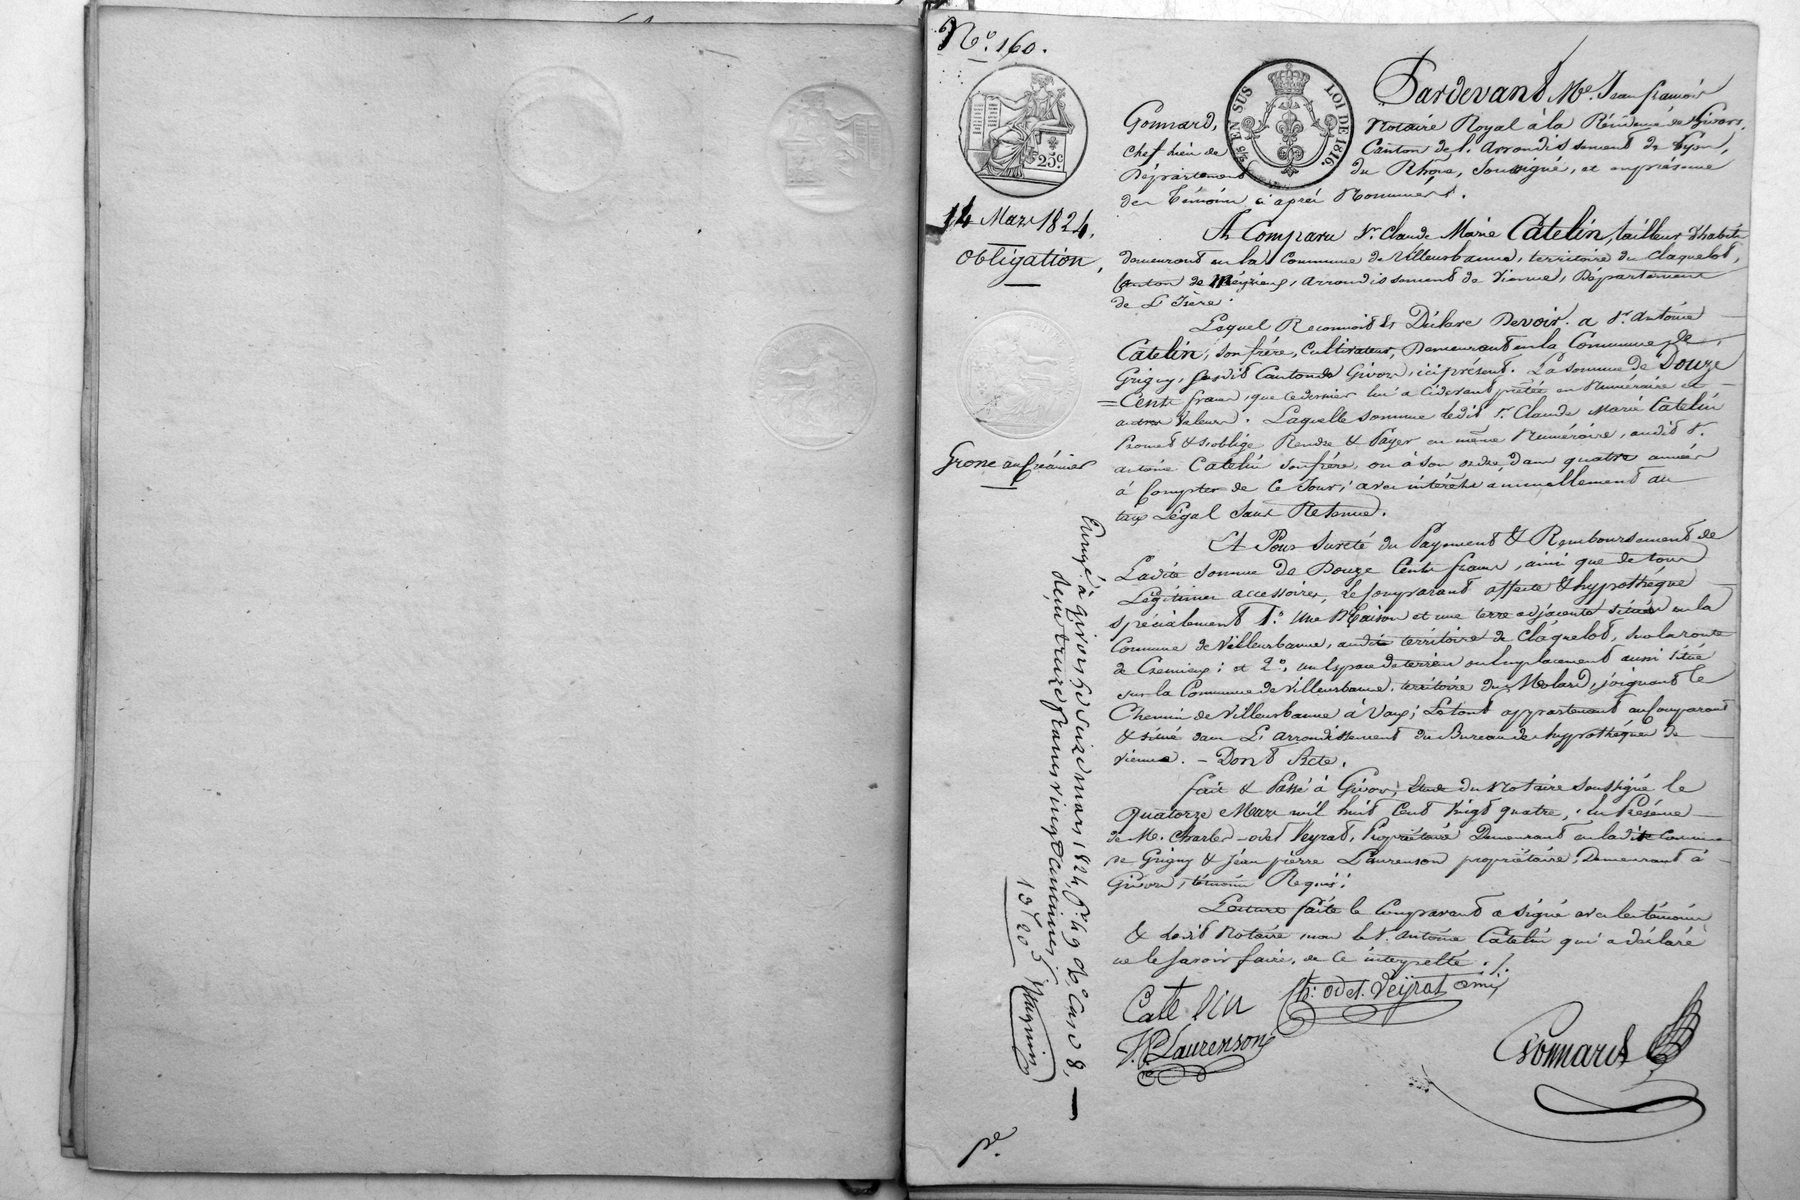 N.º 160.
5/6 EN SUS
LOI DE 1816.
25c
14 Mars 1824.
Obligation,
Grosse au créancier
Pardevant Me. Jean françois
Gonnard, Notaire Royal à la Résidence de Givors,
chef lieu de Canton de l'Arrondissement de Lyon,
Département du Rhône, soussigné, et en présence
des témoins ci après Nommés.
A Comparu Sr. Claude Marie Catelin, tailleur d'habits
demeurant en la Commune de Villeurbanne, territoire du Claquelot,
Canton de Meyzieux, Arrondissement de Vienne, Département
de L'Isère.
Lequel Reconnoit et Déclare Devoir a Sr. Antoine
Catelin, son frère, Cultivateur, Demeurant en la Commune de
Grigny, susdit Canton de Givors, ici présent. La somme de Douze
= Cents francs, que ce dernier lui a cidevant prêtée en Numéraire et
autres Valeurs. Laquelle somme ledit Sr. Claude Marie Catelin
Promet & s'oblige Rendre & Payer en même Numéraire, audit Sr.
antoine Catelin son frère, ou à son ordre dans quatre années
à Compter de Ce Jour, avec intérêts annuellement au
taux Légal sans Retenue.
Et Pour sureté du Payement & Remboursement de
Ladite somme de Douze Cents francs, ainsi que de tous
Légitimes accessoires, le Comparant affecte & hypothèque
spécialement 1.º Une Maison et une terre adjacente située en la
Commune de Villeurbanne, audit territoire de Claquelot, sur la route
de Cremieux; et 2.º, un Espace de terrein ou Emplacement aussi situé
sur la Commune de Villeurbanne, territoire du Molard, joignant le
Chemin de Villeurbanne à Vaux; Le tout appartenant au Comparant
& situé dans L'Arrondissement du Bureau des hypothèques de
Vienne. – Dont Acte.
fait & Passé à Givors, Etude du Notaire soussigné le
Quatorze Mars mil huit Cent vingt quatre, En Présence
de M. Charles-odet Veyrat, Propriétaire Demeurant en ladite Commune
de Grigny & Jean pierre Laurenson propriétaire, Demeurant à
Givors, témoins Requis;
Lecture faite le Comparant a signé avec les témoins
& ledit Notaire, non le Sr. Antoine Catelin qui a déclaré
ne le savoir faire, de Ce interpellé ./.
Catelin
Ch: odet. Veÿrat
J.P. Laurenson
Gonnard
Enregé à givors le seize mars 1824, f.º 49 Vº Case 8,
reçu treize francs vingt centimes
13f 20c